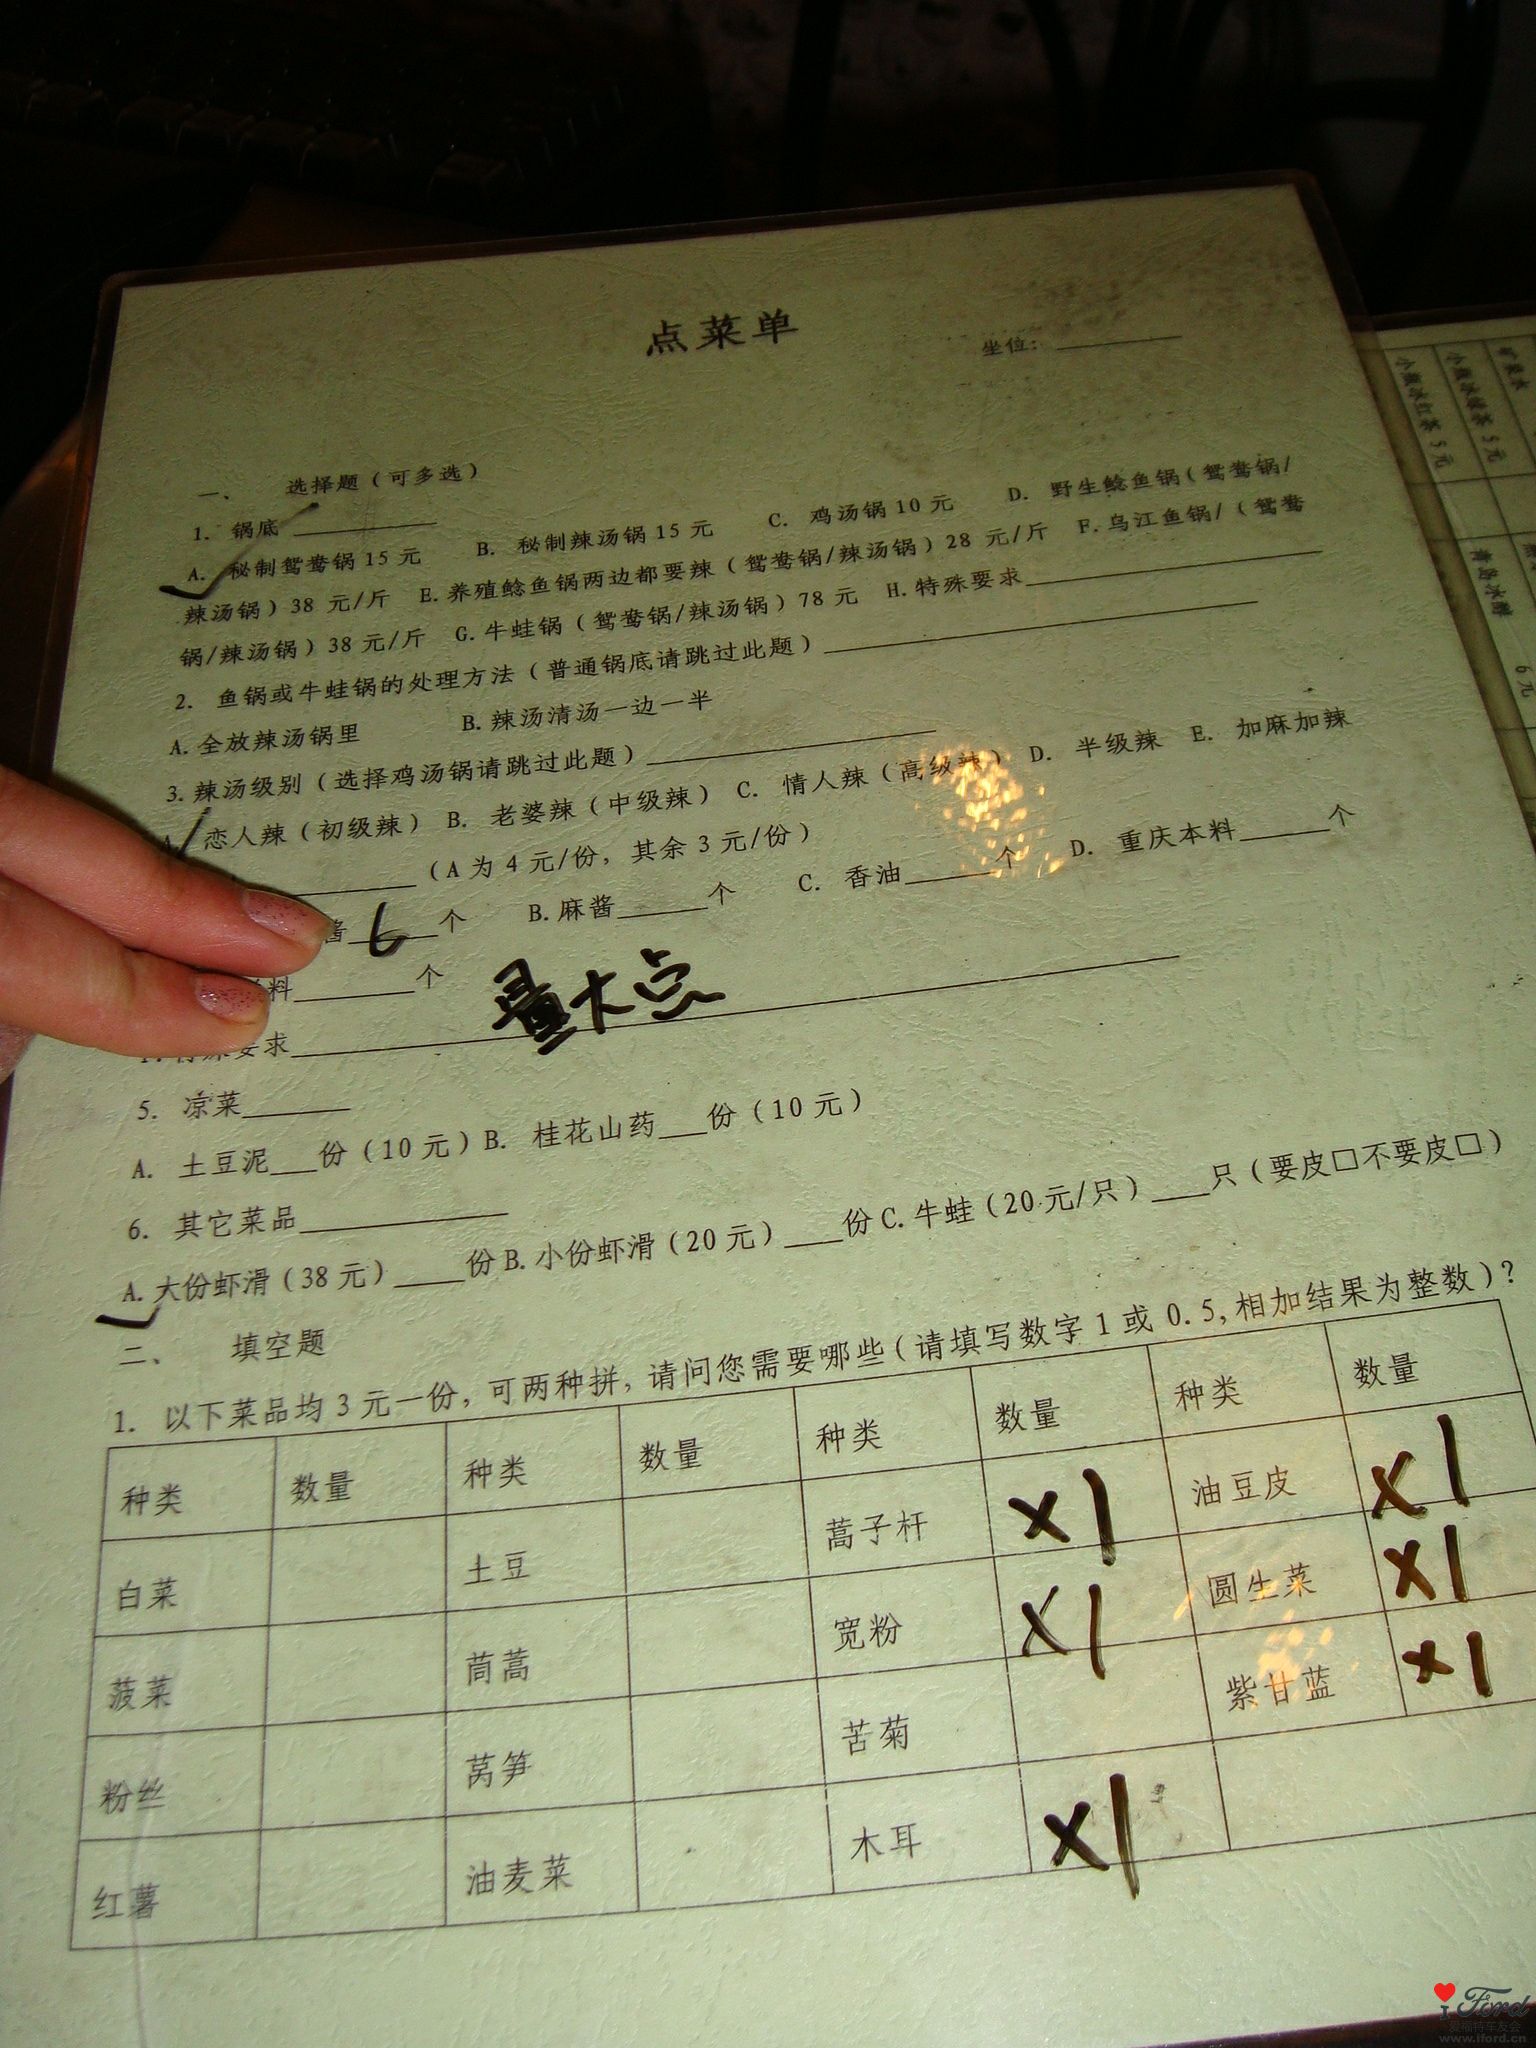 点菜单
坐位：
一、 选择题（可多选）
1. 锅底
A. 秘制鸳鸯锅15元 B. 秘制辣汤锅15元 C. 鸡汤锅10元 D. 野生鲶鱼锅（鸳鸯锅/
辣汤锅）38 元/斤 E.养殖鲶鱼锅两边都要辣（鸳鸯锅/辣汤锅）28 元/斤 F.乌江鱼锅/（鸳鸯
锅/辣汤锅）38元/斤 G.牛蛙锅（鸳鸯锅/辣汤锅）78元 H.特殊要求
2. 鱼锅或牛蛙锅的处理方法（普通锅底请跳过此题）
A.全放辣汤锅里 B.辣汤清汤一边一半
3.辣汤级别（选择鸡汤锅请跳过此题）
A. 恋人辣（初级辣） B. 老婆辣（中级辣） C. 情人辣（高级辣） D. 半级辣 E. 加麻加辣
（A为4元/份，其余3元/份）
酱 6 个 B.麻酱 个 C. 香油 个 D. 重庆本料 个
料 个
要求 量大点
5. 凉菜
A. 土豆泥 份（10元）B. 桂花山药 份（10元）
6. 其它菜品
A.大份虾滑（38元） 份B.小份虾滑（20元） 份C.牛蛙（20元/只） 只（要皮□不要皮□）
二、 填空题
1. 以下菜品均3元一份，可两种拼，请问您需要哪些（请填写数字1或0.5,相加结果为整数）？
种类 数量 种类 数量 种类 数量 种类 数量
白菜 土豆 蒿子杆 x1 油豆皮 x1
菠菜 茼蒿 宽粉 x1 圆生菜 x1
粉丝 莴笋 苦菊 紫甘蓝 x1
红薯 油麦菜 木耳 x1
小瓶冰红茶 5元
小瓶冰绿茶 5元
矿泉水
青岛冰醇 6元
I Ford
爱福特车友会
www.iford.cn